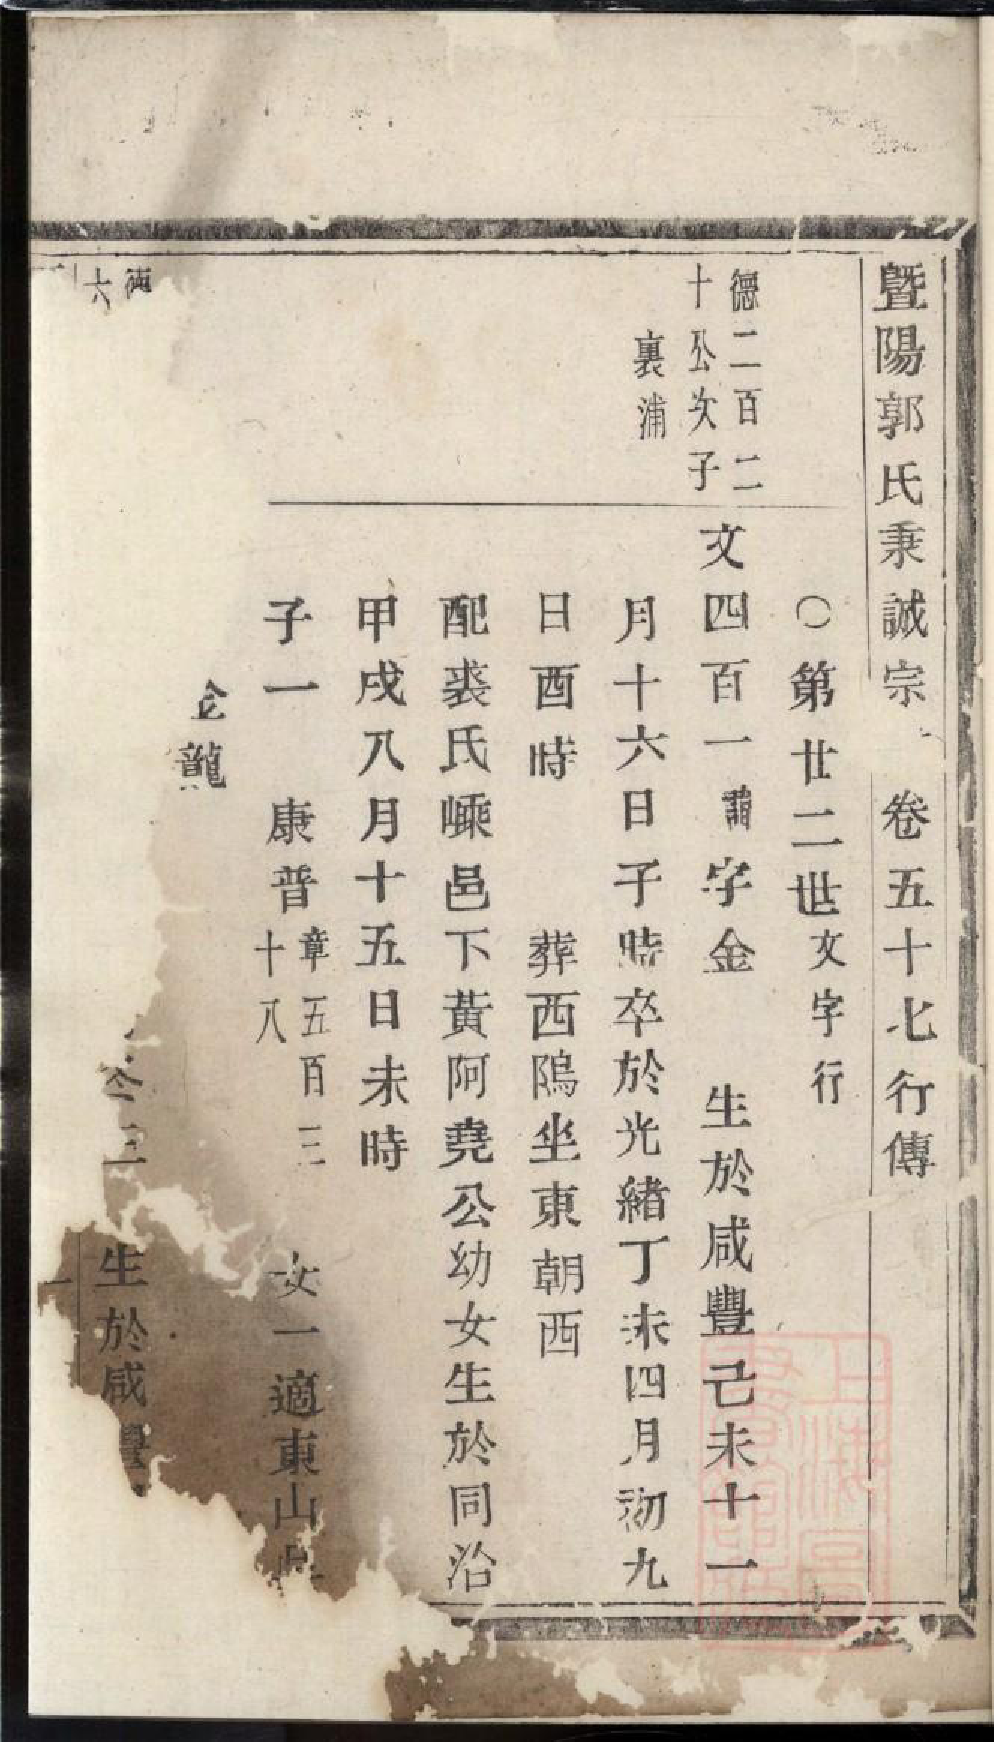 暨陽郭氏秉誠宗 卷五十七行傳
〇第廿二世文字行
德二百二
十公次子
裏浦
文四百一諱字金 生於咸豐己未十一
月十六日子時卒於光緒丁未四月初九
日酉時 葬西隖坐東朝西
配裘氏嵊邑下黃阿堯公幼女生於同治
甲戌八月十五日未時
子一 康普章五百三十八 女一適東山
金龍
德
六
生於咸豐
上海圖書館藏